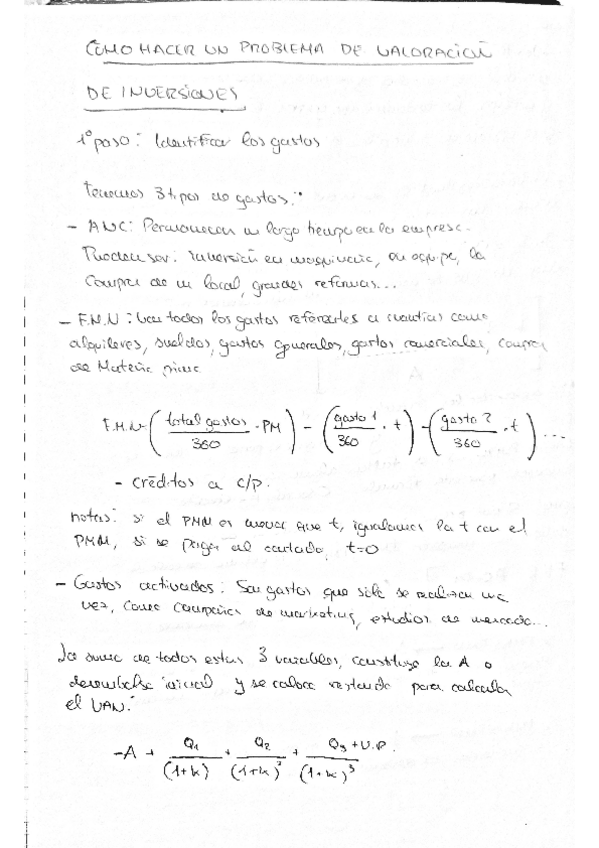 COMO HACER UN PROBLEMA DE VALORACIÓN
DE INVERSIONES
1º paso: Identificar los gastos
Tenemos 3 tipos de gastos:
- ANC: Permanecen un largo tiempo en la empresa.
Pueden ser: inversión en maquinaria, un equipo, la
compra de un local, grandes reformas...
- F.M.N: Son todos los gastos referentes a cuantías como
alquileres, sueldos, gastos generales, gastos comerciales, compra
de Materia prima
F.M.N = (total gastos / 360 · PM) - (gasto 1 / 360 · t) - (gasto 2 / 360 · t) ...
- créditos a c/p.
notas: si el PMM es menor que t, igualamos la t con el
PMM, si se paga al contado, t=0
- Gastos activados: Son gastos que sólo se realizan una
vez, como campañas de marketing, estudios de mercado...
La suma de todos estas 3 variables, constituye la A o
desembolso inicial y se coloca restando para calcular
el VAN:
-A + Q1 / (1+k) + Q2 / (1+k)² + Q3 + V.R. / (1+k)³